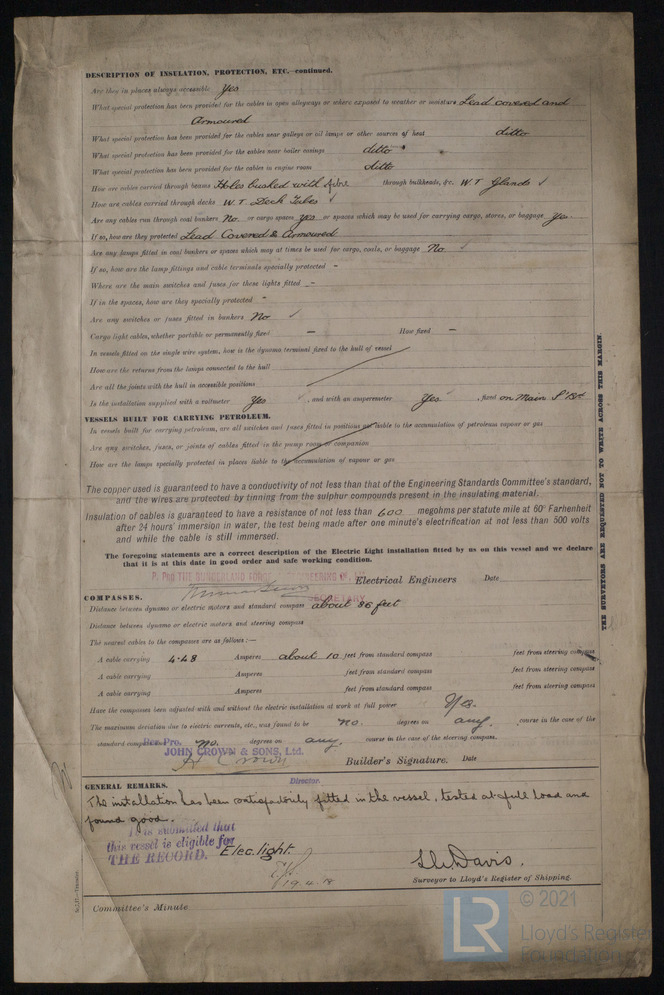 DESCRIPTION OF INSULATION, PROTECTION, ETC.—continued.
Are they in places always accessible Yes
What special protection has been provided for the cables in open alleyways or where exposed to weather or moisture Lead covered and
Armoured
What special protection has been provided for the cables near galleys or oil lamps or other sources of heat ditto
What special protection has been provided for the cables near boiler casings ditto
What special protection has been provided for the cables in engine room ditto
How are cables carried through beams Holes bushed with fibre through bulkheads, &c. W.T Glands ✓
How are cables carried through decks W.T. Deck Tubes ✓
Are any cables run through coal bunkers No or cargo spaces yes or spaces which may be used for carrying cargo, stores, or baggage Yes
If so, how are they protected Lead Covered & Armoured
Are any lamps fitted in coal bunkers or spaces which may at times be used for cargo, coals, or baggage No ✓
If so, how are the lamp fittings and cable terminals specially protected -
Where are the main switches and fuses for these lights fitted -
If in the spaces, how are they specially protected -
Are any switches or fuses fitted in bunkers No ✓
Cargo light cables, whether portable or permanently fixed - How fixed -
In vessels fitted on the single wire system, how is the dynamo terminal fixed to the hull of vessel
How are the returns from the lamps connected to the hull
Are all the joints with the hull in accessible positions
Is the installation supplied with a voltmeter Yes ✓, and with an amperemeter Yes ✓, fixed on Main S'Brd
VESSELS BUILT FOR CARRYING PETROLEUM.
In vessels built for carrying petroleum, are all switches and fuses fitted in positions not liable to the accumulation of petroleum vapour or gas
Are any switches, fuses, or joints of cables fitted in the pump room or companion
How are the lamps specially protected in places liable to the accumulation of vapour or gas
The copper used is guaranteed to have a conductivity of not less than that of the Engineering Standards Committee's standard,
and the wires are protected by tinning from the sulphur compounds present in the insulating material.
Insulation of cables is guaranteed to have a resistance of not less than 600 megohms per statute mile at 60° Farhenheit
after 24 hours' immersion in water, the test being made after one minute's electrification at not less than 500 volts
and while the cable is still immersed.
The foregoing statements are a correct description of the Electric Light installation fitted by us on this vessel and we declare
that it is at this date in good order and safe working condition.
THE SUNDERLAND FORGE
Electrical Engineers Date
SECRETARY
COMPASSES.
Distance between dynamo or electric motors and standard compass about 86 feet
Distance between dynamo or electric motors and steering compass
The nearest cables to the compasses are as follows:—
A cable carrying 4.48 Amperes about 10 feet from standard compass feet from steering compass
A cable carrying Amperes feet from standard compass feet from steering compass
A cable carrying Amperes feet from standard compass feet from steering compass
Have the compasses been adjusted with and without the electric installation at work at full power Yes.
The maximum deviation due to electric currents, etc., was found to be No. degrees on any. course in the case of the
standard compass No. degrees on any. course in the case of the steering compass.
Per Pro.
JOHN CROWN & SONS, Ltd.
H Crown Builder's Signature. Date
Director.
GENERAL REMARKS.
The installation has been satisfactorily fitted in the vessel, tested at full load and
found good.
It is submitted that
this vessel is eligible for
THE RECORD. Elec. light.
19.4.18
Davis.
Surveyor to Lloyd's Register of Shipping.
Committee's Minute.
THE SURVEYORS ARE REQUESTED NOT TO WRITE ACROSS THIS MARGIN.
LR
© 2021
Lloyd's Register
Foundation